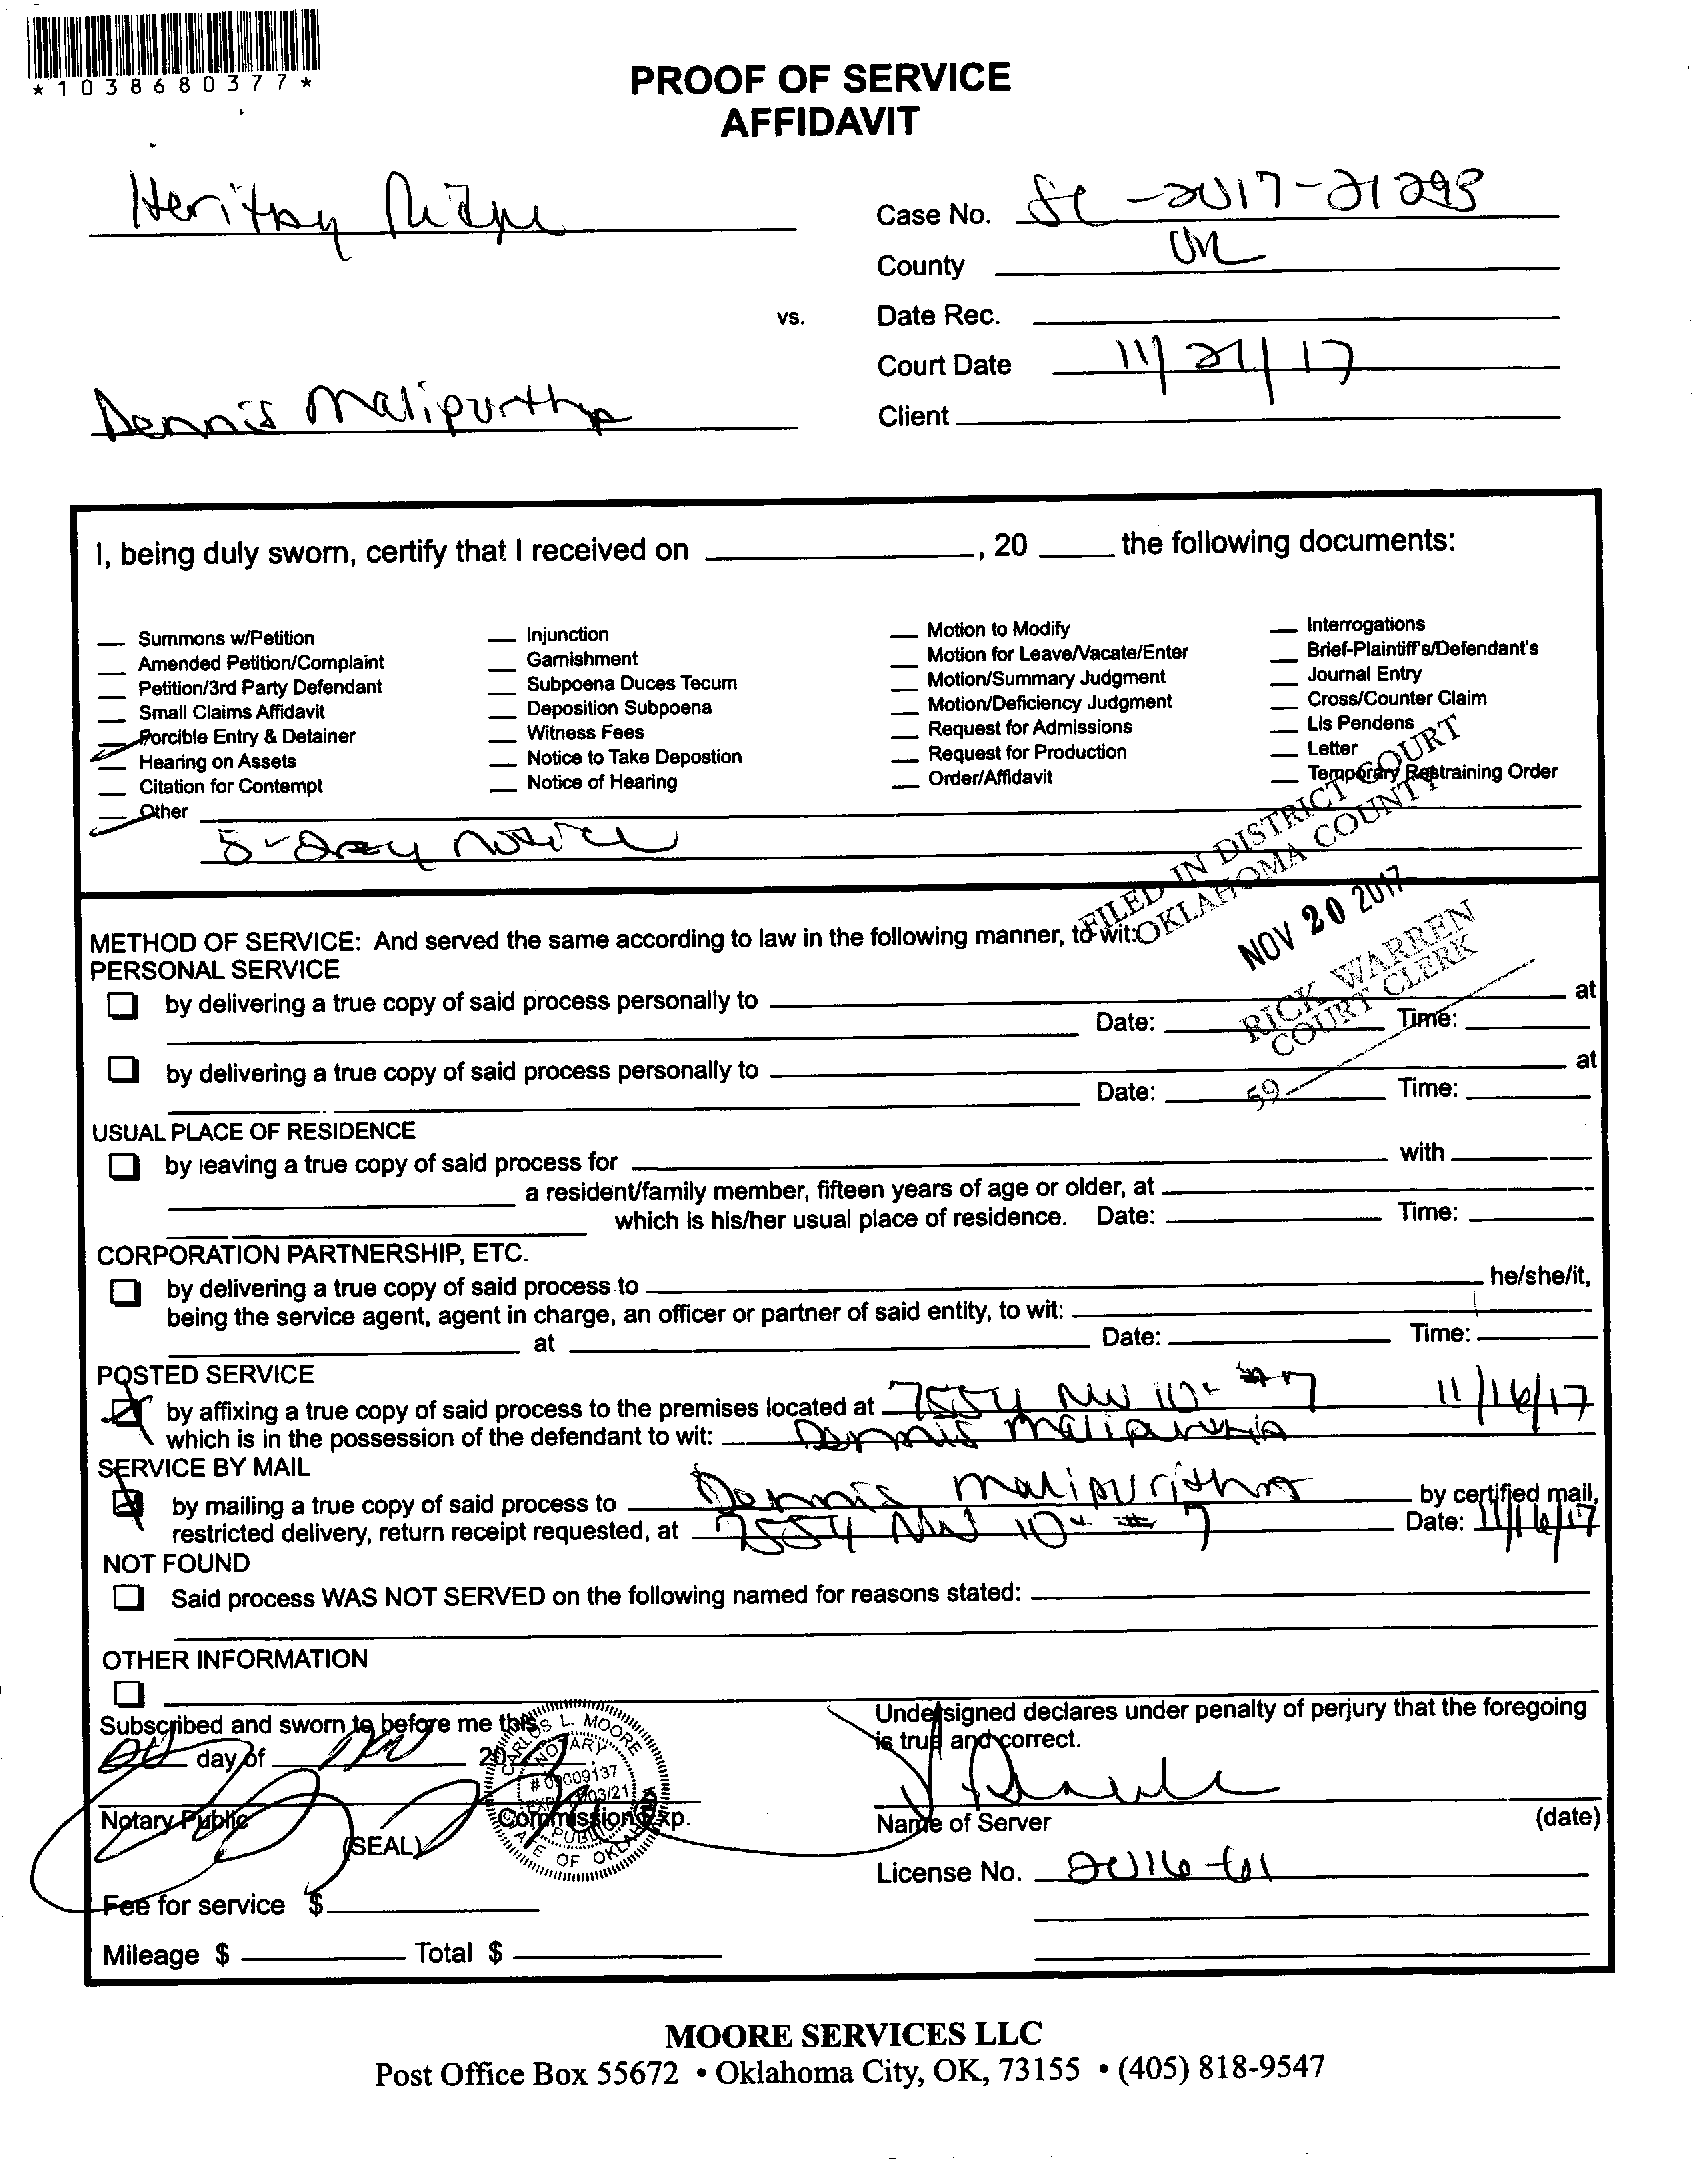 *1038680377*
PROOF OF SERVICE
AFFIDAVIT
Case No. SC-2017-21293
County OK
vs.
Date Rec.
Court Date 11/21/17
Dennis
Client
I, being duly sworn, certify that I received on , 20 the following documents:
Summons w/Petition
Amended Petition/Complaint
Petition/3rd Party Defendant
Small Claims Affidavit
Forcible Entry & Detainer
Hearing on Assets
Citation for Contempt
Other
5-Day Notice
Injunction
Garnishment
Subpoena Duces Tecum
Deposition Subpoena
Witness Fees
Notice to Take Depostion
Notice of Hearing
Motion to Modify
Motion for Leave/Vacate/Enter
Motion/Summary Judgment
Motion/Deficiency Judgment
Request for Admissions
Request for Production
Order/Affidavit
Interrogations
Brief-Plaintiff's/Defendant's
Journal Entry
Cross/Counter Claim
Lis Pendens
Letter
Temporary Restraining Order
FILED IN DISTRICT COURT
OKLAHOMA COUNTY
NOV 20 2017
RICK WARREN
COURT CLERK
59
METHOD OF SERVICE: And served the same according to law in the following manner, to wit:
PERSONAL SERVICE
by delivering a true copy of said process personally to at
Date: Time:
by delivering a true copy of said process personally to at
Date: Time:
USUAL PLACE OF RESIDENCE
by leaving a true copy of said process for with
a resident/family member, fifteen years of age or older, at
which is his/her usual place of residence. Date: Time:
CORPORATION PARTNERSHIP, ETC.
by delivering a true copy of said process to he/she/it,
being the service agent, agent in charge, an officer or partner of said entity, to wit:
at Date: Time:
POSTED SERVICE
by affixing a true copy of said process to the premises located at 7554 NW 10 #7 11/16/17
which is in the possession of the defendant to wit: Dennis
SERVICE BY MAIL
by mailing a true copy of said process to Dennis by certified mail,
restricted delivery, return receipt requested, at 7554 NW 10 # 7 Date: 11/16/17
NOT FOUND
Said process WAS NOT SERVED on the following named for reasons stated:
OTHER INFORMATION
Subscribed and sworn to before me this
day of Nov 20
Notary Public
(SEAL)
Commission Exp.
CARLOS L. MOORE
NOTARY
# 09009137
PUBLIC
STATE OF OKLAHOMA
Fee for service $
Mileage $ Total $
Undersigned declares under penalty of perjury that the foregoing
is true and correct.
Name of Server (date)
License No. 2016-61
MOORE SERVICES LLC
Post Office Box 55672 • Oklahoma City, OK, 73155 • (405) 818-9547